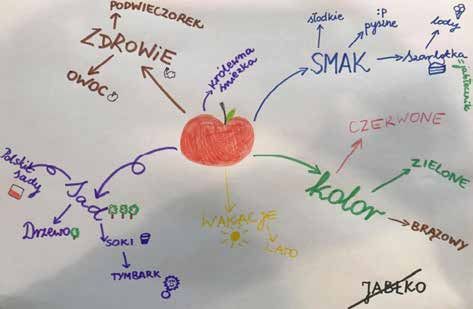 PODWIECZOREK
ZDROWIE
OWOC
królewna
śnieżka
SMAK
słodkie
:P
pyszne
lody
szarlotka
=jabłecznik
CZERWONE
ZIELONE
kolor
BRĄZOWY
Polskie
sady
Sad
Drzewo
SOKI
TYMBARK
WAKACJE
LATO
JABŁKO